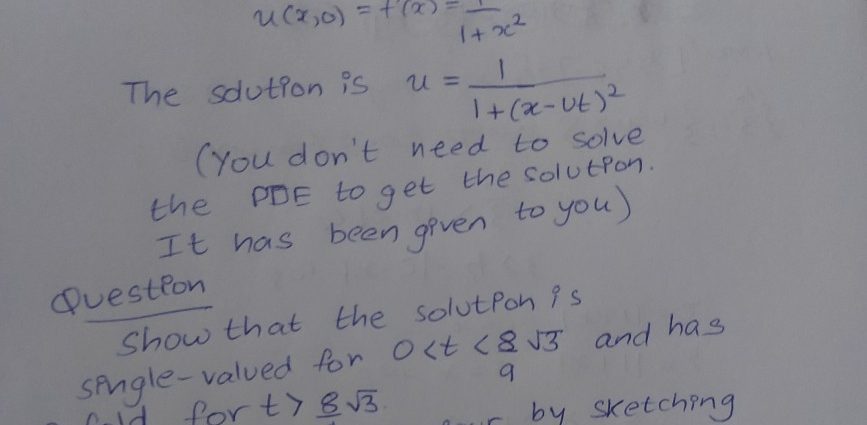 u(x,0) = f(x) = 1/(1+x²)
The solution is u = 1/(1+(x-Ut)²)
(You don't need to solve
the PDE to get the solution.
It has been given to you)
Question
Show that the solution is
single-valued for 0<t<8√3/9 and has
fold for t> 8√3
by sketching